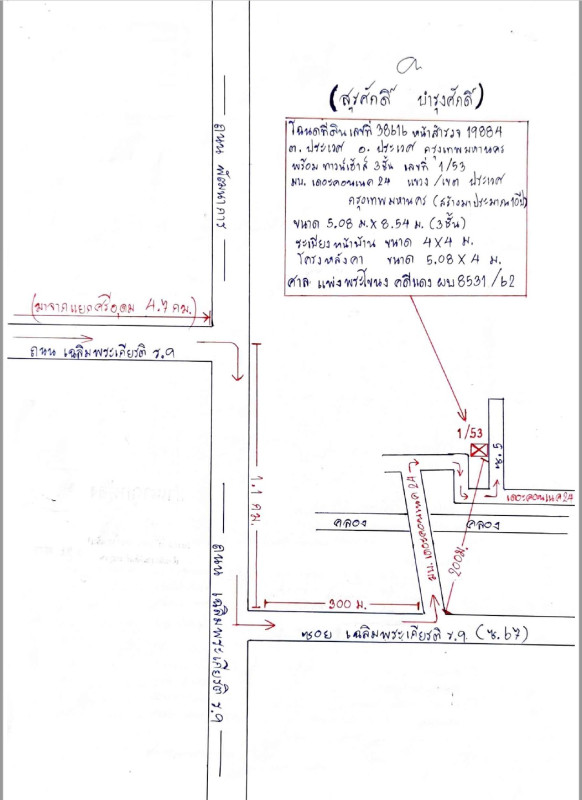 (สุรศักดิ์ บำรุงศักดิ์)
โฉนดที่ดิน เลขที่ 38616 หน้าสำรวจ 19884
ต. ประเวศ อ. ประเวศ กรุงเทพมหานคร
พร้อม ทาวน์เฮ้าส์ 3 ชั้น เลขที่ 1/53
มบ. เดอะคอนเนค 24 แขวง/เขต ประเวศ
กรุงเทพมหานคร (สร้างมาประมาณ 10 ปี)
ขนาด 5.08 ม. X 8.54 ม. (3 ชั้น)
ระเบียงหน้าบ้าน ขนาด 4 X 4 ม.
โครงหลังคา ขนาด 5.08 X 4 ม.
ศาล แพ่งพระโขนง คดีแดง ผบ 8531/62
ถนน พัฒนาการ
(มาจากแยกศรีอุดม 4.7 กม.)
ถนน เฉลิมพระเกียรติ ร.๙
1.1 กม.
1/53
ซ.5
เดอะคอนเนค 24
มบ. เดอะคอนเนค 24
คลอง
คลอง
200 ม.
300 ม.
ซอย เฉลิมพระเกียรติ ร.๙ (ซ.67)
ถนน เฉลิมพระเกียรติ ร.๙